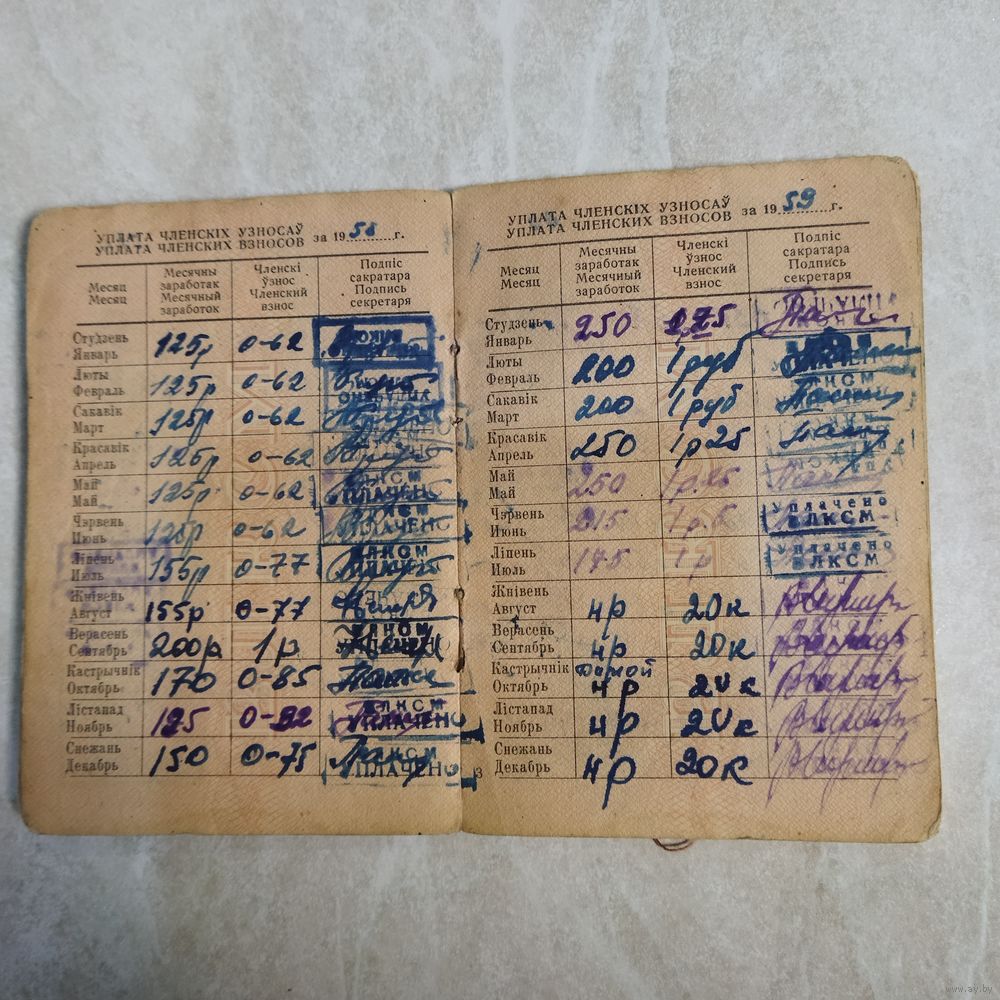 УПЛАТА ЧЛЕНСКІХ УЗНОСАЎ
УПЛАТА ЧЛЕНСКИХ ВЗНОСОВ за 1958 г.
Месяц
Месяц
Месячны
заработак
Месячный
заработок
Членскі
ўзнос
Членский
взнос
Подпіс
сакратара
Подпись
секретаря
Студзень
Январь 125р 0-62
Люты
Февраль 125р 0-62
Сакавік
Март 125р 0-62
Красавік
Апрель 125р 0-62
Май
Май 125р 0-62
ВЛКСМ
УПЛАЧЕНО
Чэрвень
Июнь 125р 0-62
ВЛКСМ
УПЛАЧЕНО
Ліпень
Июль 155р 0-77
ВЛКСМ
Жнівень
Август 155р 0-77
Верасень
Сентябрь 200р 1р
ВЛКСМ
Кастрычнік
Октябрь 170 0-85
Лістапад
Ноябрь 125 0-82
ВЛКСМ
УПЛАЧЕНО
Снежань
Декабрь 150 0-75
ВЛКСМ
УПЛАЧЕНО
3
УПЛАТА ЧЛЕНСКІХ УЗНОСАЎ
УПЛАТА ЧЛЕНСКИХ ВЗНОСОВ за 1959 г.
Месяц
Месяц
Месячны
заработак
Месячный
заработок
Членскі
ўзнос
Членский
взнос
Подпіс
сакратара
Подпись
секретаря
Студзень
Январь 250
Люты
Февраль 200 1руб
Сакавік
Март 200 1руб
ВЛКСМ
Красавік
Апрель 250 1р25
Май
Май 250 1р.25
Чэрвень
Июнь 215
Уплачено
ВЛКСМ
Ліпень
Июль 175 1р
Уплачено
ВЛКСМ
Жнівень
Август 4р 20к
Верасень
Сентябрь 4р 20к
Кастрычнік
Октябрь 4р 20к
Лістапад
Ноябрь 4р 20к
Снежань
Декабрь 4р 20к
www.ay.by